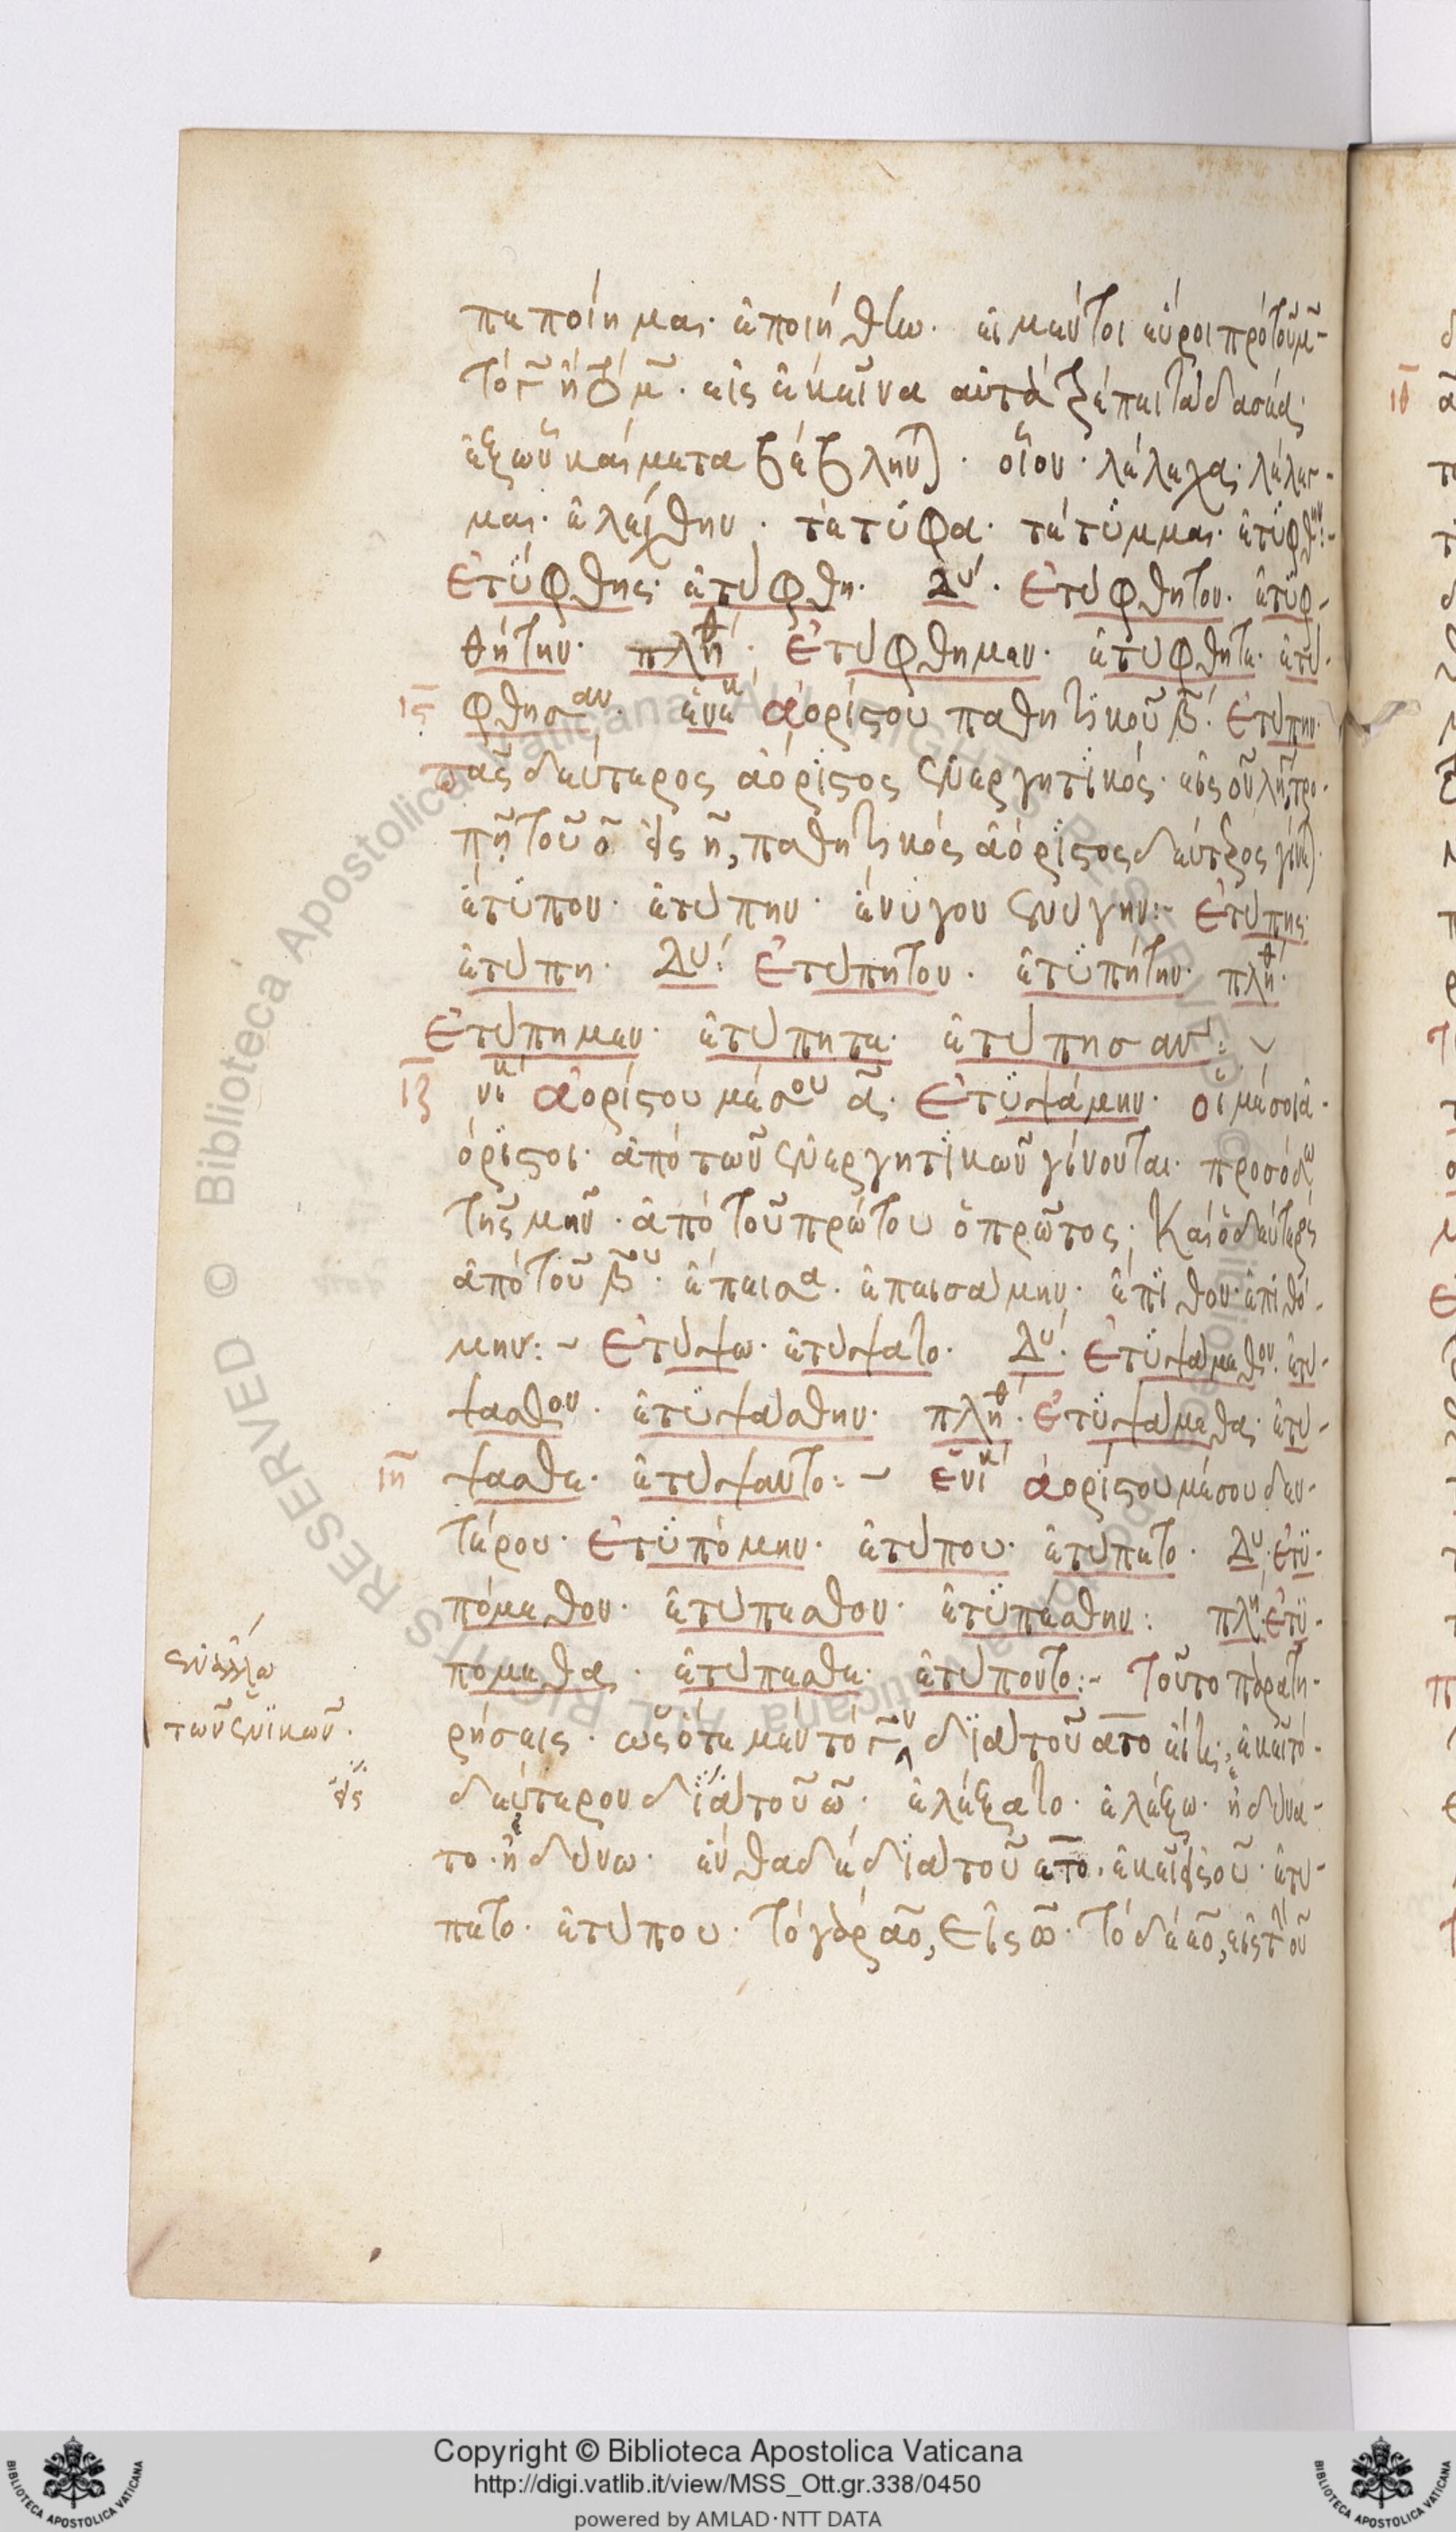 πεποίημαι· ἐποιήθην· εἰ μέντοι εὕροι πρὸ τοῦ μ̄
τὸ γ̄ ἢ
εἰς ἐκεῖνα αὐτὰ τρέπει τὰ δασέα
ἐξ ὧν καὶ μετεβέβληνται· οἷον· λέλεχα· λέλεγ-
μαι· ἐλέχθην· τέτυφα· τέτυμμαι· ἐτύφθην:-
Ἐτύφθης· ἐτύφθη· Δυ· Ἐτύφθητον· ἐτυφ-
θήτην· πληθ· Ἐτύφθημεν· ἐτύφθητε· ἐτύ-
ιϛ φθησαν· ἑνικ ἀορίστου παθητικοῦ β· Ἐτύπην·
Πᾶς δεύτερος ἀόριστος ἐνεργητικός· εἰς ον λήγων, τρο-
πῇ τοῦ ο εἰς η, παθητικὸς ἀόριστος δεύτερος γίνεται
ἔτυπον· ἐτύπην· ἔνυγον ἐνύγην:- Ἐτύπης·
ἐτύπη· Δυ· Ἐτύπητον· ἐτυπήτην· πληθ·
Ἐτύπημεν· ἐτύπητε· ἐτύπησαν:
ιζ νικ ἀορίστου μέσου α· Ἐτυψάμην· οἱ μέσοι ἀ-
όριστοι· ἀπὸ τῶν ἐνεργητικῶν γίνονται· προσόδω
τῆς μην· ἀπὸ τοῦ πρώτου ὁ πρῶτος· Καὶ ὁ δεύτερος
ἀπὸ τοῦ βου· ἔπεισα· ἐπεισάμην· ἔπιθον· ἐπιθό-
μην:- Ἐτύψω· ἐτύψατο· Δυ· Ἐτυψάμεθον· ἐτύ-
ψασθον· ἐτυψάσθην· πληθ· Ἐτυψάμεθα· ἐτύ-
ιη ψασθε· ἐτύψαντο:- Ἑνικ ἀορίστου μέσου δευ-
τέρου· Ἐτυπόμην· ἐτύπου· ἐτύπετο· Δυ· Ἐτυ-
πόμεθον· ἐτύπεσθον· ἐτυπέσθην: πλη· Ἐτυ-
πόμεθα· ἐτύπεσθε· ἐτύποντο:- Τοῦτο παρατη-
ρήσεις· ὡς ὅτε μὲν τὸ γον διὰ τοῦ ατο ἐστί, ἐκεῖ τὸ
δεύτερον διὰ τοῦ ω· ἐλέξατο· ἐλέξω· ἠδύνα-
το· ἠδύνω· ἔνθα δὲ διὰ τοῦ ετο· ἐκεῖ εἰς ου· ἐτύ-
πετο· ἐτύπου· Τὸ γὰρ αο, Εἰς ω· Τὸ δὲ εο, εἰς τὴν ου
τῶν ἑνικῶν·